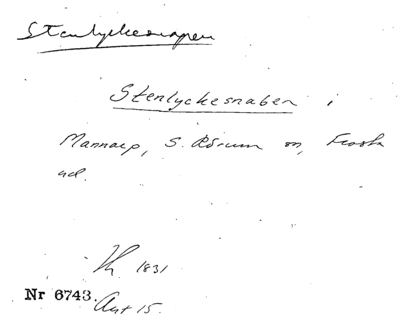 Stenlyckesnapen
Stenlyckesnaben i
Mannarp, S. Rörum sn, Frosta
hd.
1831
Nr 6743. Avt 15.